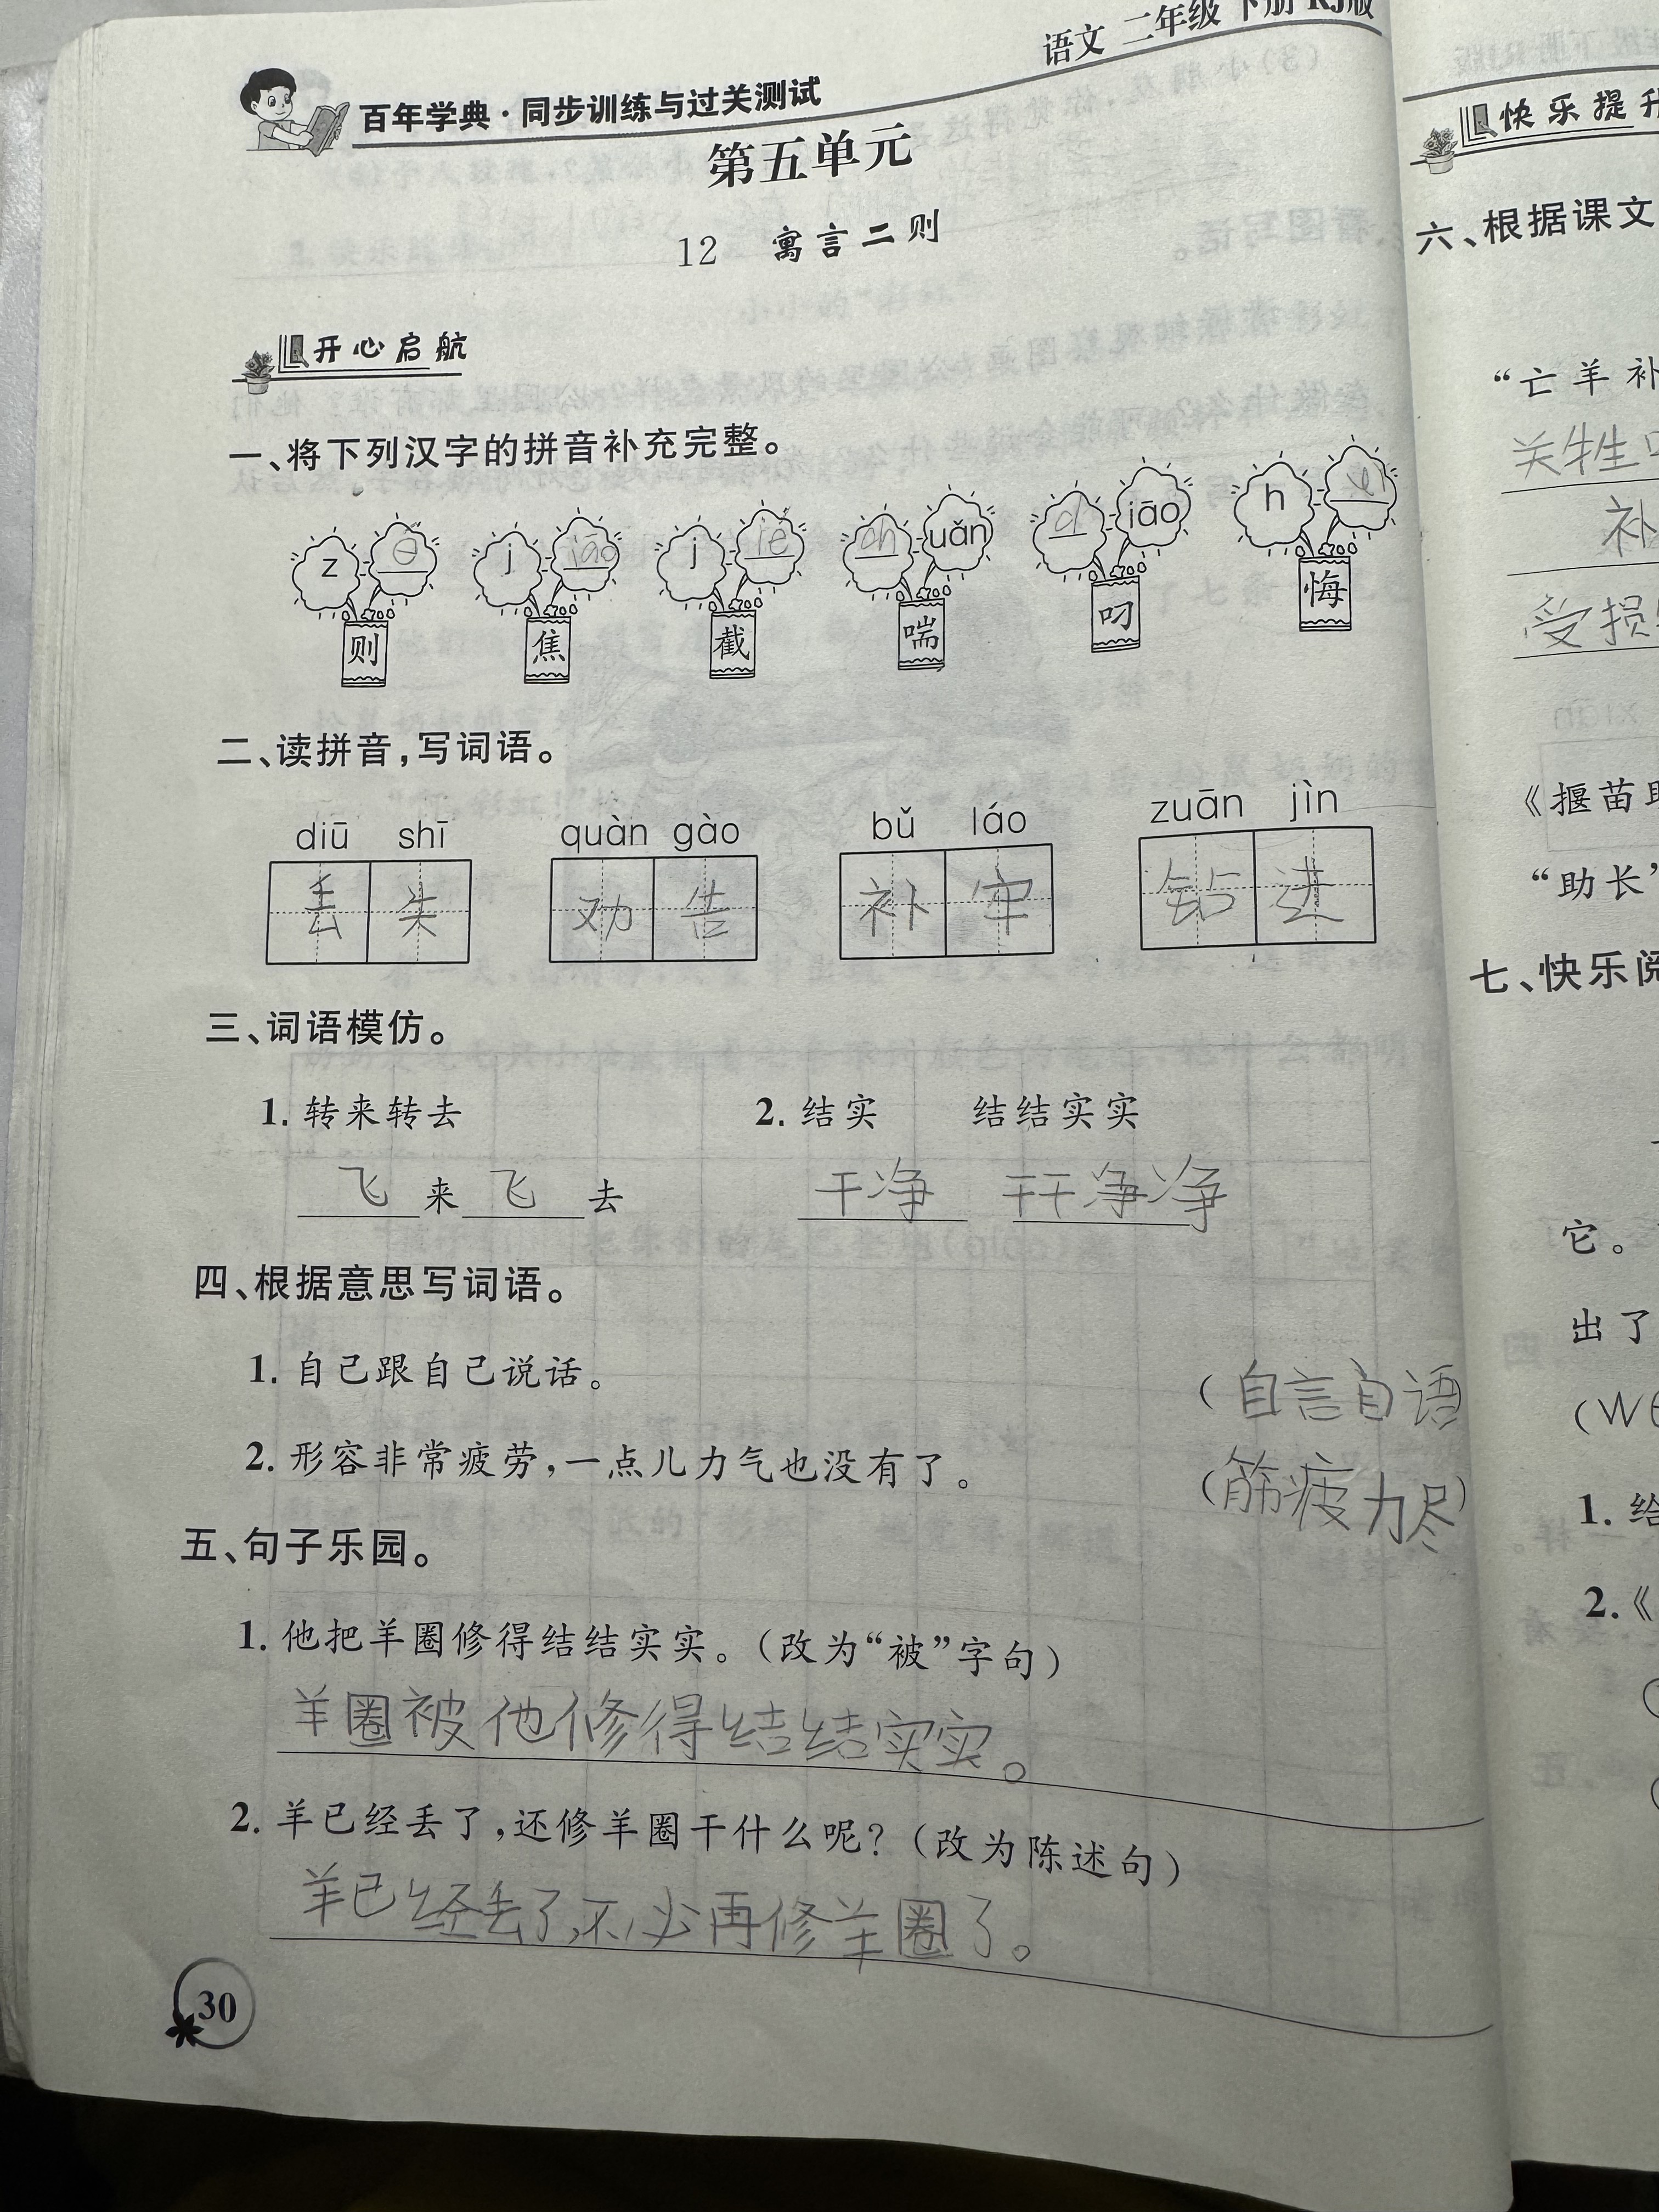 语文 二年级 下册 RJ版
百年学典·同步训练与过关测试
第五单元
12 寓言二则
开心启航
一、将下列汉字的拼音补充完整。
z é j iāo j ié ch uǎn d iāo h
则 焦 截 喘 叼 悔
二、读拼音,写词语。
diū shī quàn gào bǔ láo zuān jìn
丢失 劝告 补牢 钻进
三、词语模仿。
1. 转来转去 2. 结实 结结实实
飞来飞去 干净 干干净净
四、根据意思写词语。
1. 自己跟自己说话。 (自言自语
2. 形容非常疲劳,一点儿力气也没有了。 (筋疲力尽)
五、句子乐园。
1. 他把羊圈修得结结实实。(改为“被”字句)
羊圈被他修得结结实实。
2. 羊已经丢了,还修羊圈干什么呢?(改为陈述句)
羊已经丢了,不必再修羊圈了。
30
快乐提升
六、根据课文
“亡羊补
关牲口
补
受损
《揠苗助
“助长”
七、快乐阅
它。
出了
1. 给
2.《